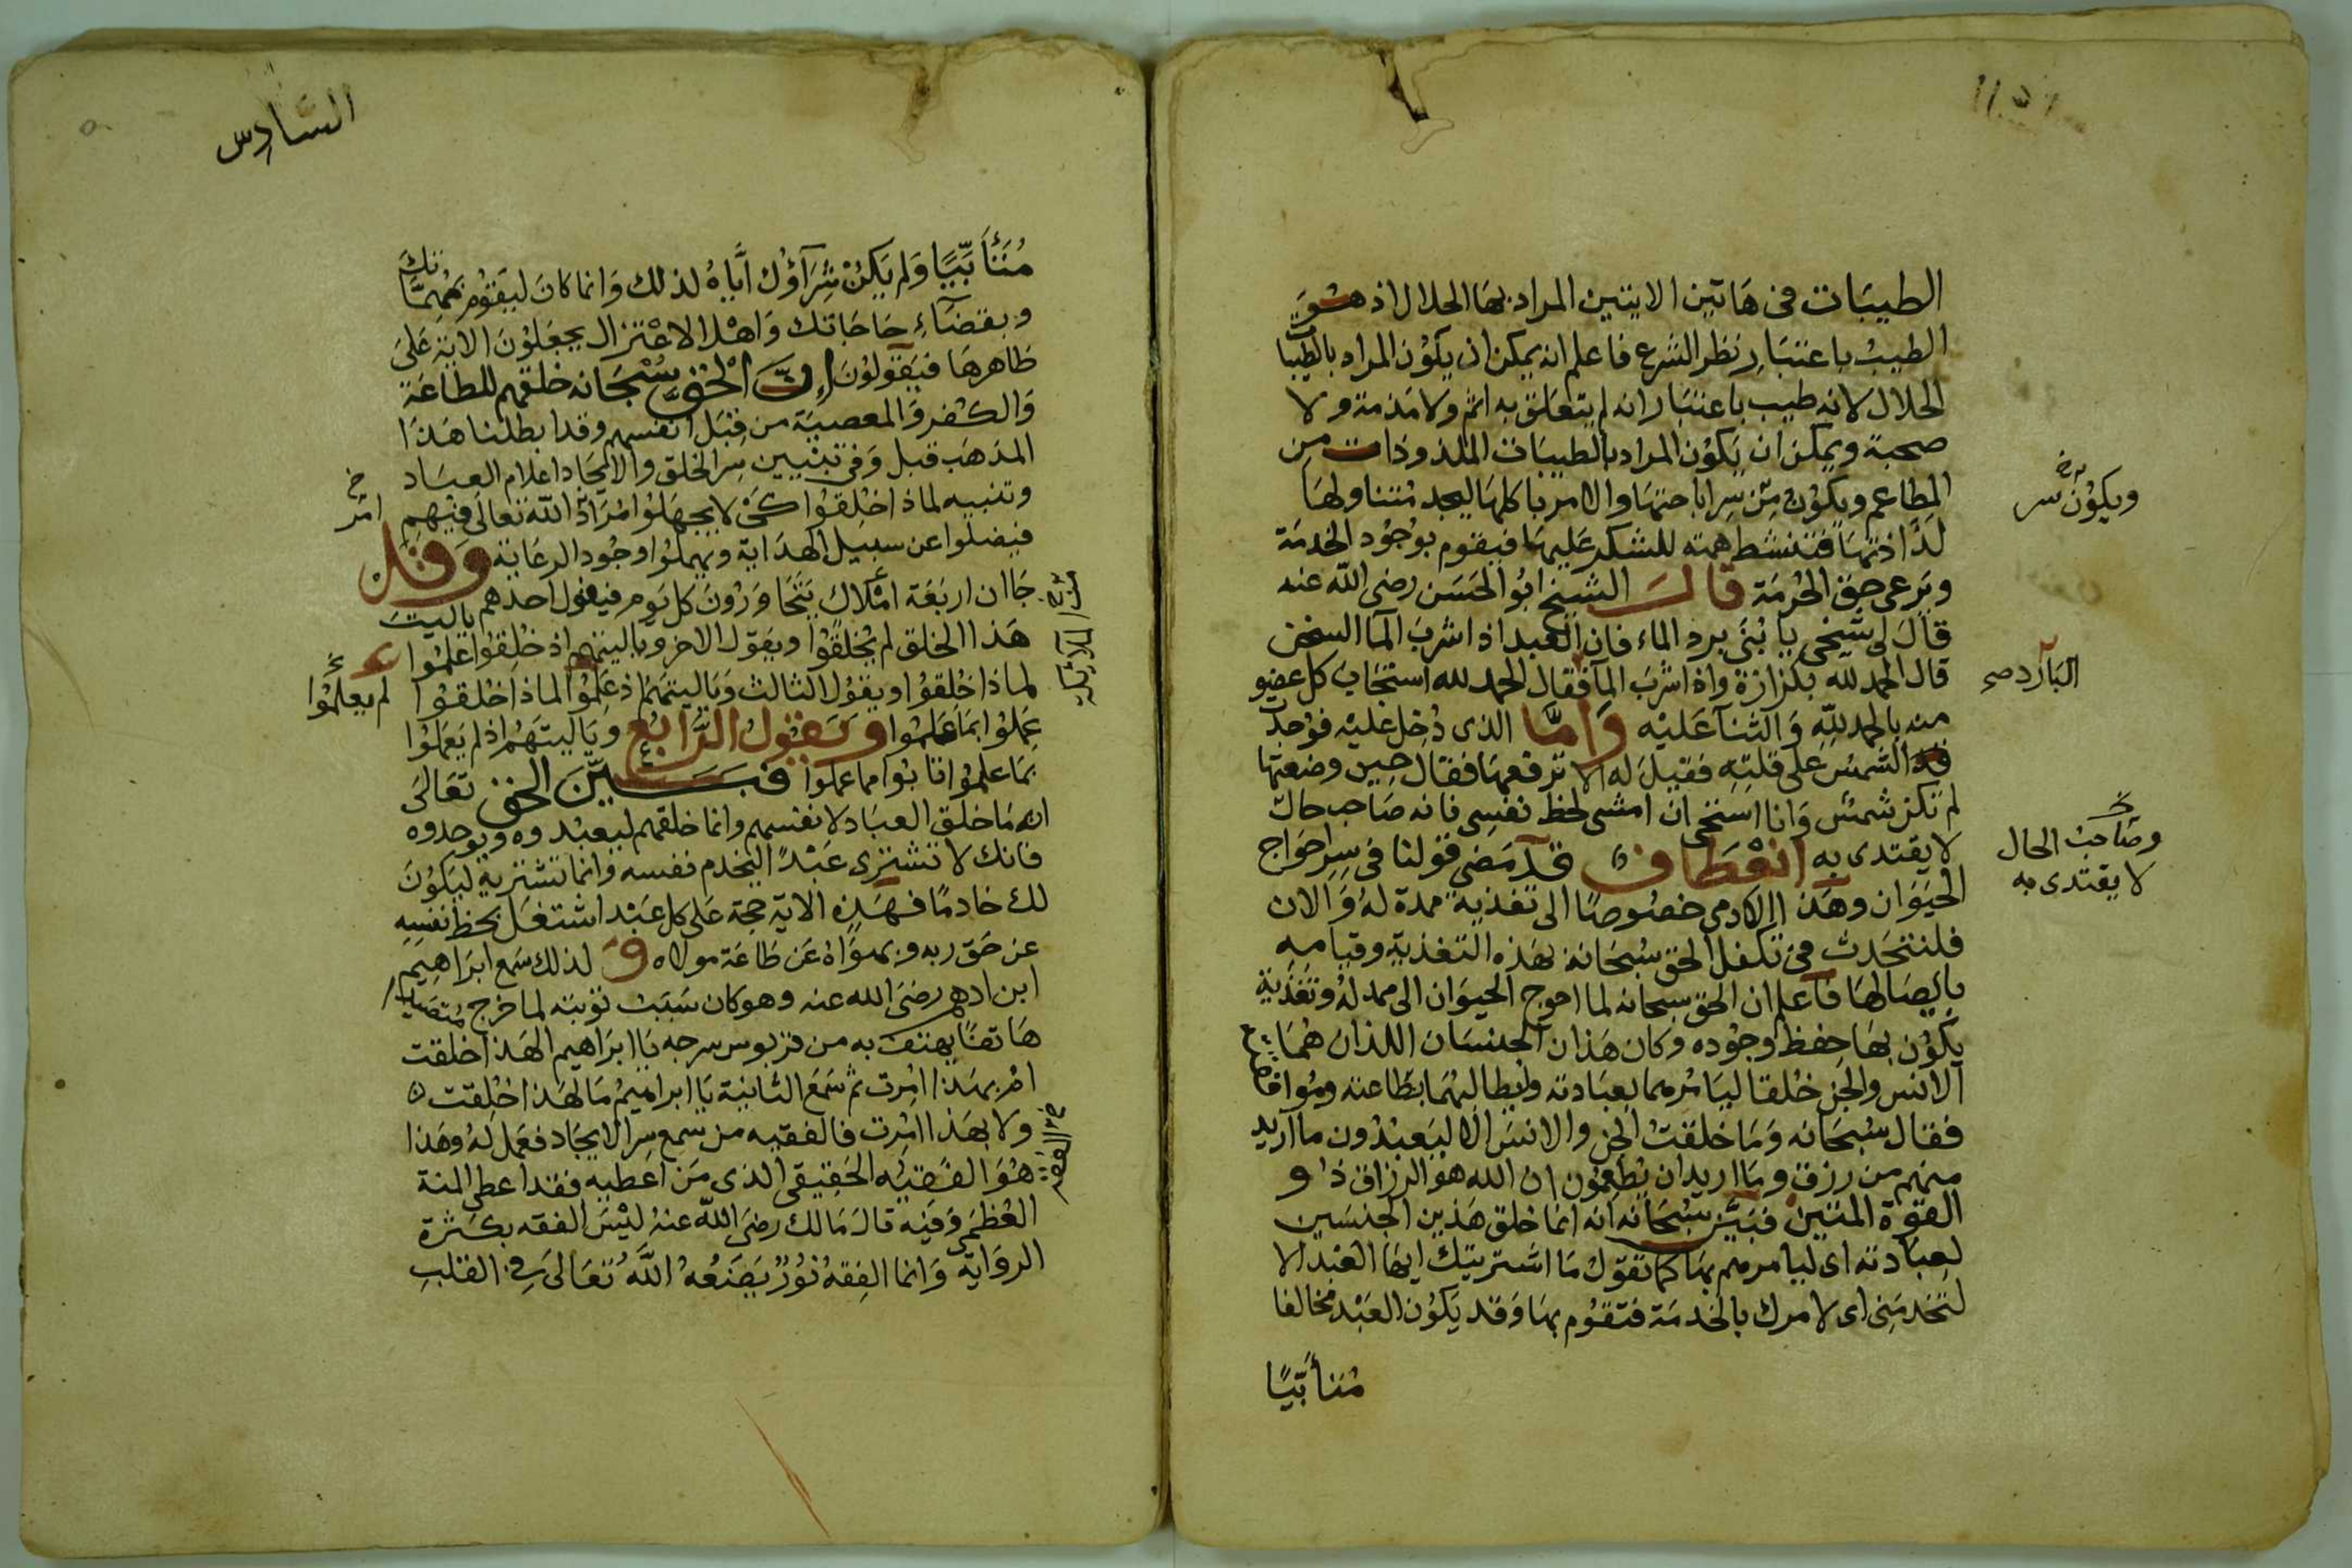 الطيبات في هاتين الايتين المراد بها الحلال اذ هو
الطيب باعتبار نظر الشرع فاعلم انه يمكن ان يكون المراد بالطيبات
الحلال لانه طيب باعتبار انه لم يتعلق به اثم ولا مذمة ولا
حجبة ويمكن ان يكون المراد بالطيبات الملذوذات من
المطاعم ويكون من سر اباحتها والامر باكلها ليجد متناولها
ويكون سر
لذاذتها فتنشط همته للشكر عليها فيقوم بوجود الخدمة
ويرعى حق الحرمة قال الشيخ ابو الحسن رضي الله عنه
قال لى شيخى يا بنى برد الماء فان العبد اذا اشرب الما السخن
قال الحمد لله بكزازة واذا شرب الما فقال الحمد لله استجاب كل عضو
البارد صح
منه بالحمد لله والثنا عليه واما الذى دخل عليه فوجد
الشمس على قلته فقيل له الا ترفعها فقال حين وضعتها
لم تكن شمس وانا استحى ان امشى لحظ نفسى فانه صاحب حال
وصاحب الحال
لا يقتدى به
لا يقتدى به انعطاف قد مضى قولنا فى سر احواج
الحيوان وهذا الادمى خصوصا الى تغذية ممدة له والان
فلنتحدث فى تكفل الحق سبحانه بهذه التغذية وقيامه
بايصالها فاعلم ان الحق سبحانه لما احوج الحيوان الى ممد له وتغذية
يكون بها حفظ وجوده وكان هذان الجنسان اللذان هما
الانس والجن خلقا ليامرهما بعبادته ويطالبهما بطاعته وموافا
فقال سبحانه وما خلقت الجن والانس الا ليعبدون ما اريد
منهم من رزق وما اريد ان يطعمون ان الله هو الرزاق ذو
القوة المتين فبين سبحانه انه انما خلق هذين الجنسين
لعبادته اى ليامرهم بها كما تقول ما اشتريتك ايها العبد الا
لتخدمنى اى لامرك بالخدمة فتقوم بها وقد يكون العبد مخالفا
متأبيا
السادس
متأبيا ولم يكن شراؤك اياه لذلك وانما كان ليقوم بمهماتك
وبقضاء حاجاتك واهل الاعتزال يجعلون الاية على
ظاهرها فيقولون ان الحق سبحانه خلقهم للطاعة
والكفر والمعصية من قبل انفسهم وقد ابطلنا هذا
المذهب قبل وفى تبيين سر الخلق والايجاد اعلام العباد
وتنبيه لماذا خلقوا كى لا يجهلوا مراد الله تعالى فيهم
امر
فيضلوا عن سبيل الهداية ويهملوا وجود الرعاية وقد
جا ان اربعة املاك يتجاورون كل يوم فيقول احدهم ياليت
هذا الخلق لم يخلقوا ويقول الاخر وياليتهم اذ خلقوا علموا
لماذا خلقوا ويقول الثالث وياليتهم اذ علموا لماذا خلقوا
لم يعلموا
عملوا بما علموا ويقول الرابع وياليتهم اذ لم يعملوا
بما علموا تابوا مما عملوا فبين الحق تعالى
انه ما خلق العباد لانفسهم وانما خلقهم ليعبدوه ويوحدوه
فانك لا تشترى عبدا ليخدم نفسه وانما تشتريه ليكون
لك خادما فهذه الاية حجة على كل عبد اشتغل بحظ نفسه
عن حق ربه وبهواه عن طاعة مولاه و لذلك سمع ابراهيم
ابن ادهم رضي الله عنه وهو كان سبب توبته لما خرج متصيدا
هاتفا يهتف به من قربوس سرجه يا ابراهيم الهذا خلقت
ام بهذا امرت ثم سمع الثانية يا ابراهيم ما لهذا خلقت
ولا بهذا امرت فالفقيه من سمع سر الايجاد فعمل له وهذا
هو الفقيه الحقيقى الذى من اعطيه فقد اعطى المنة
العظمى وفيه قال مالك رضي الله عنه ليس الفقه بكثرة
الرواية وانما الفقه نور يضعه الله تعالى فى القلب